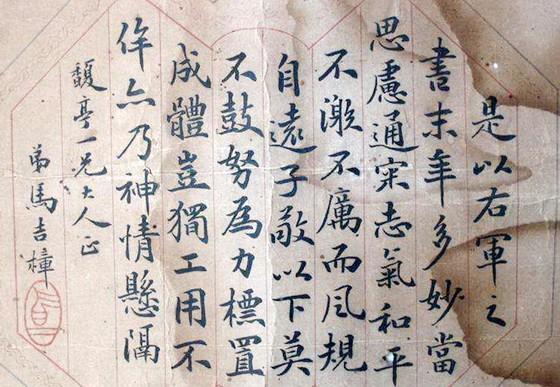 是以右軍之
書末年多妙當
思慮通宷志氣和平
不激不厲而風規
自遠子敬以下莫
不鼓努為力標置
成體豈獨工用不
侔亦乃神情懸隔
馥亭一兄大人正
弟馬吉樟